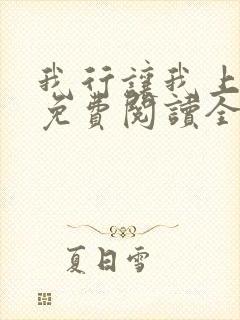 我行讓我上
免費閱讀全
夏日雪